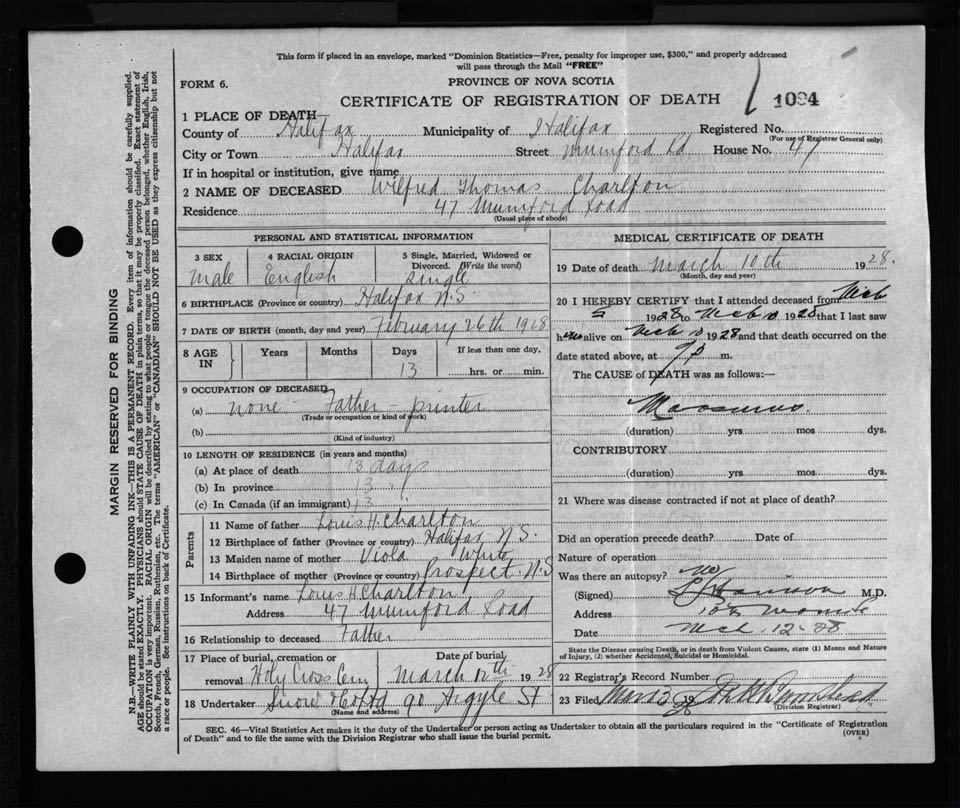 This form if placed in an envelope, marked "Dominion Statistics—Free, penalty for improper use, $300," and properly addressed
will pass through the Mail "FREE"
FORM 6.
PROVINCE OF NOVA SCOTIA
CERTIFICATE OF REGISTRATION OF DEATH
1094
1 PLACE OF DEATH
County of Halifax Municipality of Halifax Registered No.
(For use of Registrar General only)
City or Town Halifax Street Mumford Rd House No. 47
If in hospital or institution, give name
2 NAME OF DECEASED Wilfred Thomas Charlton
Residence 47 Mumford Road
(Usual place of abode)
PERSONAL AND STATISTICAL INFORMATION
3 SEX
Male
4 RACIAL ORIGIN
English
5 Single, Married, Widowed or
Divorced. (Write the word)
Single
6 BIRTHPLACE (Province or country) Halifax N.S.
7 DATE OF BIRTH (month, day and year) February 26th 1928
8 AGE
IN
Years
Months
Days
13
If less than one day,
hrs. or min.
9 OCCUPATION OF DECEASED
(a) none Father - printer
(Trade or occupation or kind of work)
(b)
(Kind of industry)
10 LENGTH OF RESIDENCE (in years and months)
(a) At place of death 13 days
(b) In province 13 "
(c) In Canada (if an immigrant) 13 "
Parents
11 Name of father Louis H. Charlton
12 Birthplace of father (Province or country) Halifax, N.S.
13 Maiden name of mother Viola White
14 Birthplace of mother (Province or country) Prospect. N.S
15 Informant's name Louis H Charlton
Address 47 Mumford Road
16 Relationship to deceased Father
17 Place of burial, cremation or
removal Holy Cross Cem
Date of burial
March 12th 1928
18 Undertaker Snow & Co Ltd 90 Argyle St
(Name and address)
MEDICAL CERTIFICATE OF DEATH
19 Date of death March 10th 1928.
(Month, day and year)
20 I HEREBY CERTIFY that I attended deceased from Mch
5 1928 to Mch 10 1928 that I last saw
him alive on Mch 10 1928 and that death occurred on the
date stated above, at 9 p m.
The CAUSE of DEATH was as follows:—
(duration) yrs mos dys.
CONTRIBUTORY
(duration) yrs mos dys.
21 Where was disease contracted if not at place of death?
Did an operation precede death? Date of
Nature of operation
Was there an autopsy? No
(Signed) M.D.
Address
Date Mch 12-28
State the Disease causing Death, or in death from Violent Causes, state (1) Means and Nature
of Injury, (2) whether Accidental, Suicidal or Homicidal.
22 Registrar's Record Number
23 Filed 19
(Division Registrar)
SEC. 46—Vital Statistics Act makes it the duty of the Undertaker or person acting as Undertaker to obtain all the particulars required in the "Certificate of Registration
of Death" and to file the same with the Division Registrar who shall issue the burial permit.
(OVER)
MARGIN RESERVED FOR BINDING
N.B.—WRITE PLAINLY WITH UNFADING INK—THIS IS A PERMANENT RECORD. Every item of information should be carefully supplied.
AGE should be stated EXACTLY. PHYSICIANS should STATE CAUSE OF DEATH in plain terms, so that it may be properly classified. Exact statement of
OCCUPATION is very important. RACIAL ORIGIN will be described by stating to what people or tongue the deceased person belonged, whether English, Irish,
Scotch, French, German, Russian, Ruthenian, etc. The terms "AMERICAN" or "CANADIAN" SHOULD NOT BE USED as they express citizenship but not
a race or people. See instructions on back of Certificate.